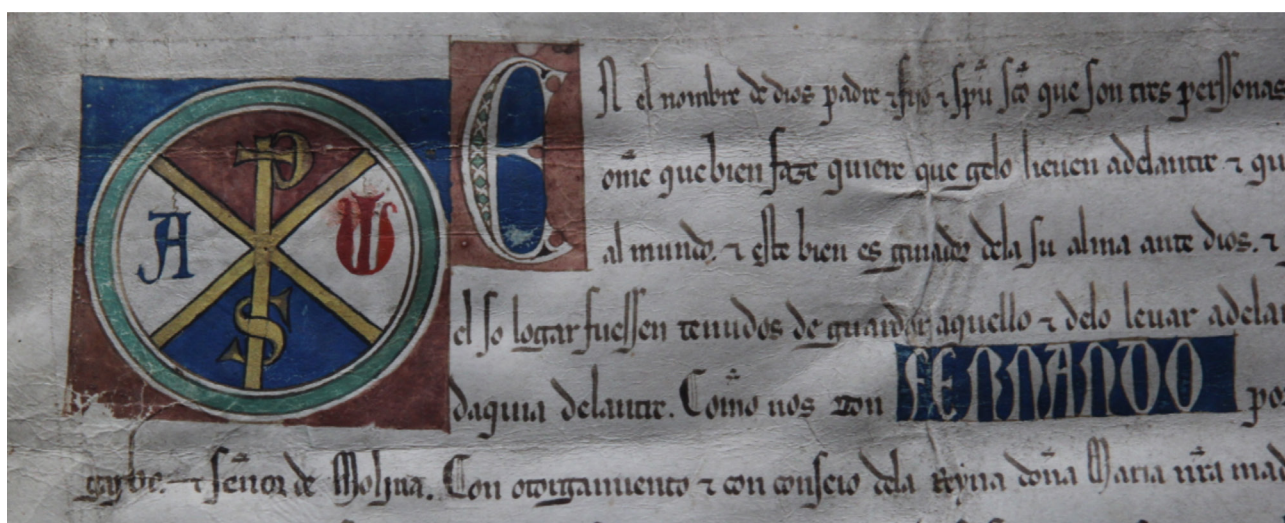 P
A ω
S
EN el nombre de dios padre ⁊ fijo ⁊ spũ sc̃o que son tres perssonas
om̃e que bien faze quiere que gelo lieuen adelantre ⁊ qu
al mundo. ⁊ este bien es guiador dela su alma ante dios. ⁊
el so logar fuessen tenudos de guardar aquello ⁊ delo leuar adelan
daquia delantre. Cõmo nos don FERNANDO por
⁊ señor de Molina. Con otorgamiento ⁊ con conseio dela Reyna doña Maria nr̃a mad